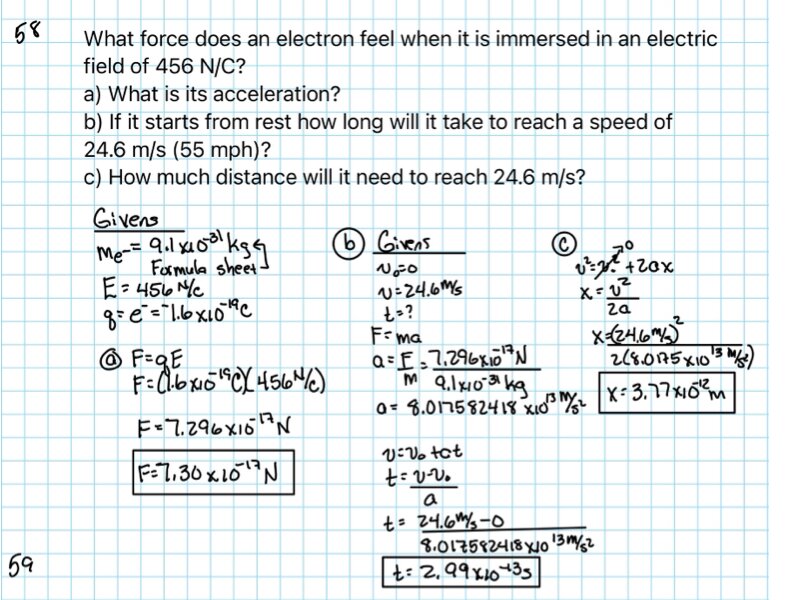 58
What force does an electron feel when it is immersed in an electric
field of 456 N/C?
a) What is its acceleration?
b) If it starts from rest how long will it take to reach a speed of
24.6 m/s (55 mph)?
c) How much distance will it need to reach 24.6 m/s?
Givens
me- = 9.1x10^-31 kg
Formula sheet
E = 456 N/C
q = e^- = -1.6x10^-19 C
(a) F = qE
F = (1.6x10^-19 C)(456 N/C)
F = 7.296x10^-17 N
F = 7.30x10^-17 N
(b) Givens
v₀=0
v=24.6 m/s
t=?
F=ma
a = F/m = 7.296x10^-17 N / 9.1x10^-31 kg
a = 8.017582418 x10^13 m/s²
v=v₀+at
t = v-v₀ / a
t = 24.6 m/s - 0 / 8.017582418 x10^13 m/s²
t = 2.99x10^-13 s
(c) v² = v₀² →0 + 2ax
x = v² / 2a
x = (24.6 m/s)² / 2(8.0175x10^13 m/s²)
x = 3.77x10^-12 m
59